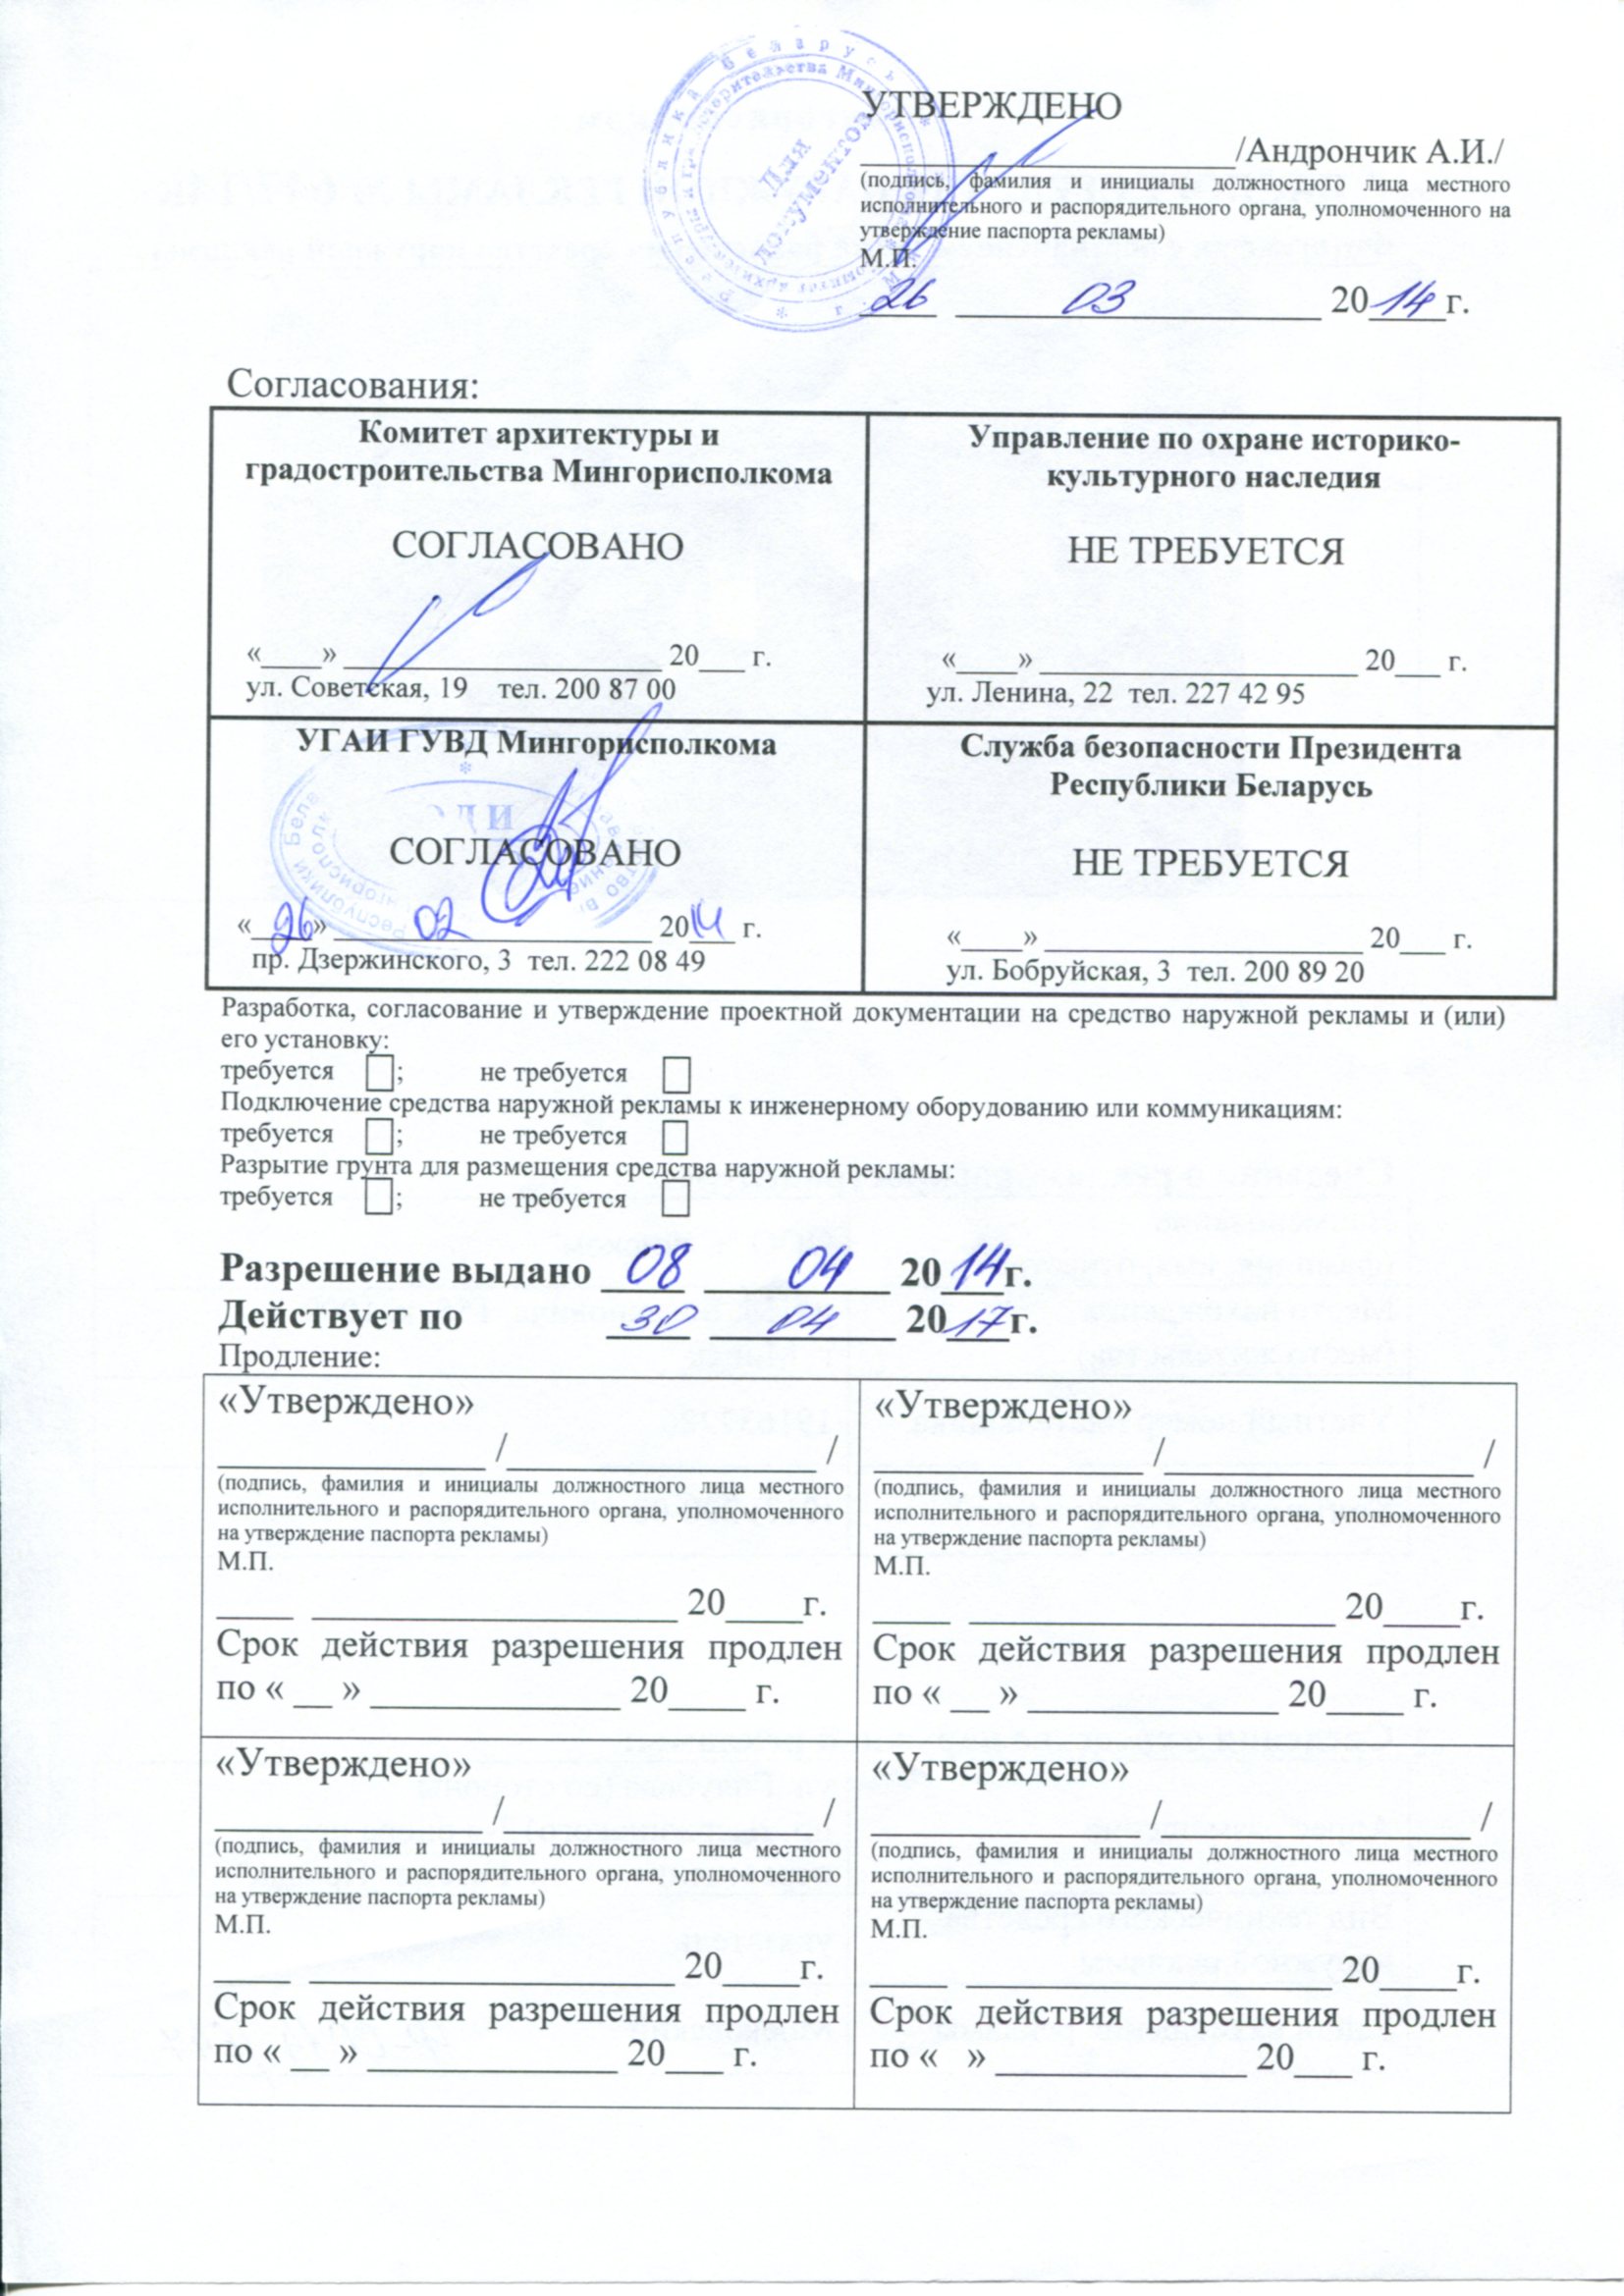 УТВЕРЖДЕНО
____________________/Андрончик А.И./
(подпись, фамилия и инициалы должностного лица местного
исполнительного и распорядительного органа, уполномоченного на
утверждение паспорта рекламы)
М.П.
26 03 2014 г.
Для
документов
Согласования:
Комитет архитектуры и
градостроительства Мингорисполкома
СОГЛАСОВАНО
«____» ____________________ 20___ г.
ул. Советская, 19 тел. 200 87 00
Управление по охране историко-
культурного наследия
НЕ ТРЕБУЕТСЯ
«____» ____________________ 20___ г.
ул. Ленина, 22 тел. 227 42 95
УГАИ ГУВД Мингорисполкома
СОГЛАСОВАНО
«26» 02 2014 г.
пр. Дзержинского, 3 тел. 222 08 49
Служба безопасности Президента
Республики Беларусь
НЕ ТРЕБУЕТСЯ
«____» ____________________ 20___ г.
ул. Бобруйская, 3 тел. 200 89 20
Разработка, согласование и утверждение проектной документации на средство наружной рекламы и (или)
его установку:
требуется ☐; не требуется ☐
Подключение средства наружной рекламы к инженерному оборудованию или коммуникациям:
требуется ☐; не требуется ☐
Разрытие грунта для размещения средства наружной рекламы:
требуется ☐; не требуется ☐
Разрешение выдано 08 04 2014г.
Действует по 30 04 2017г.
Продление:
«Утверждено»
______________ /________________ /
(подпись, фамилия и инициалы должностного лица местного
исполнительного и распорядительного органа, уполномоченного
на утверждение паспорта рекламы)
М.П.
____ ___________________ 20____г.
Срок действия разрешения продлен
по « __ » _____________ 20____ г.
«Утверждено»
______________ /________________ /
(подпись, фамилия и инициалы должностного лица местного
исполнительного и распорядительного органа, уполномоченного
на утверждение паспорта рекламы)
М.П.
____ ___________________ 20____г.
Срок действия разрешения продлен
по « __ » _____________ 20____ г.
«Утверждено»
______________ /________________ /
(подпись, фамилия и инициалы должностного лица местного
исполнительного и распорядительного органа, уполномоченного
на утверждение паспорта рекламы)
М.П.
____ ___________________ 20____г.
Срок действия разрешения продлен
по « __ » _____________ 20___ г.
«Утверждено»
______________ /________________ /
(подпись, фамилия и инициалы должностного лица местного
исполнительного и распорядительного органа, уполномоченного
на утверждение паспорта рекламы)
М.П.
____ ___________________ 20____г.
Срок действия разрешения продлен
по « » _____________ 20___ г.